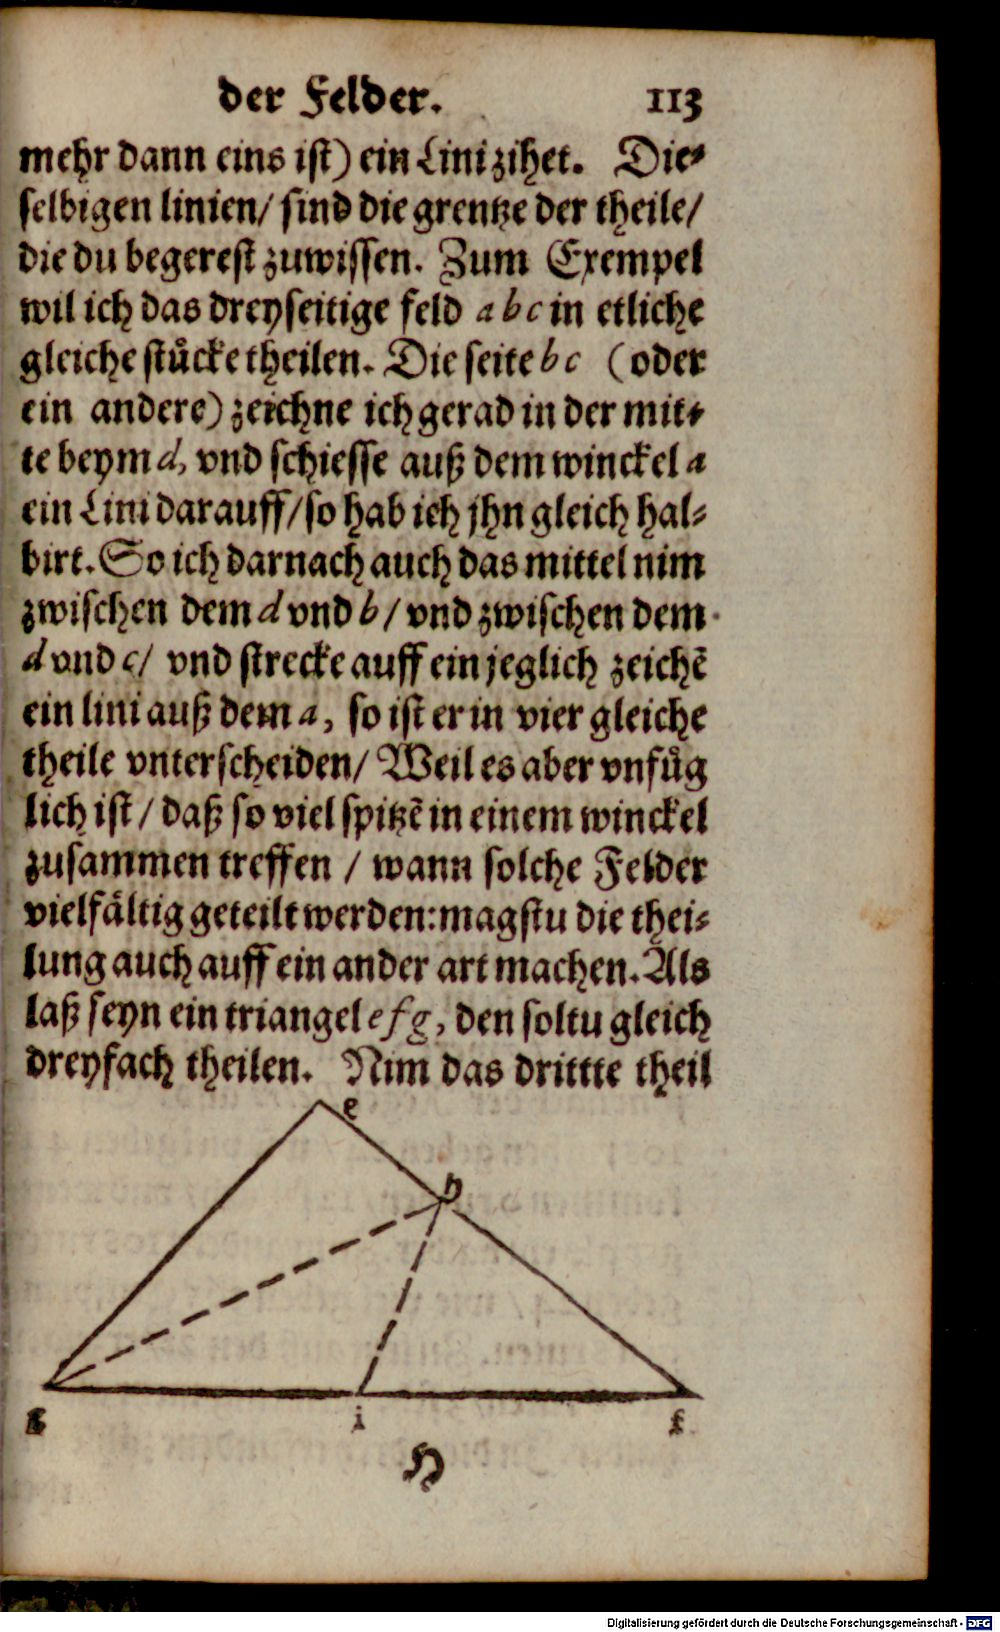 der Felder. 113
mehr dann eins ist) ein Lini zihet. Die⸗
selbigen linien/ sind die grentze der theile/
die du begerest zuwissen. Zum Exempel
wil ich das dreyseitige feld a b c in etliche
gleiche stuͤcke theilen. Die seite b c (oder
ein andere) zeichne ich gerad in der mit⸗
te beym d, vnd schiesse auß dem winckel a
ein Lini darauff/ so hab ich jhn gleich hal⸗
birt. So ich darnach auch das mittel nim
zwischen dem d vnd b/ vnd zwischen dem
d vnd c/ vnd strecke auff ein jeglich zeichē
ein lini auß dem a, so ist er in vier gleiche
theile vnterscheiden/ Weil es aber vnfuͤg
lich ist/ daß so viel spitzē in einem winckel
zusammen treffen / wann solche Felder
vielfaͤltig geteilt werden: magstu die thei⸗
lung auch auff ein ander art machen. Als
laß seyn ein triangel e f g, den soltu gleich
dreyfach theilen. Nim das drittte theil
e
h
g i f
H
Digitalisierung gefördert durch die Deutsche Forschungsgemeinschaft - DFG